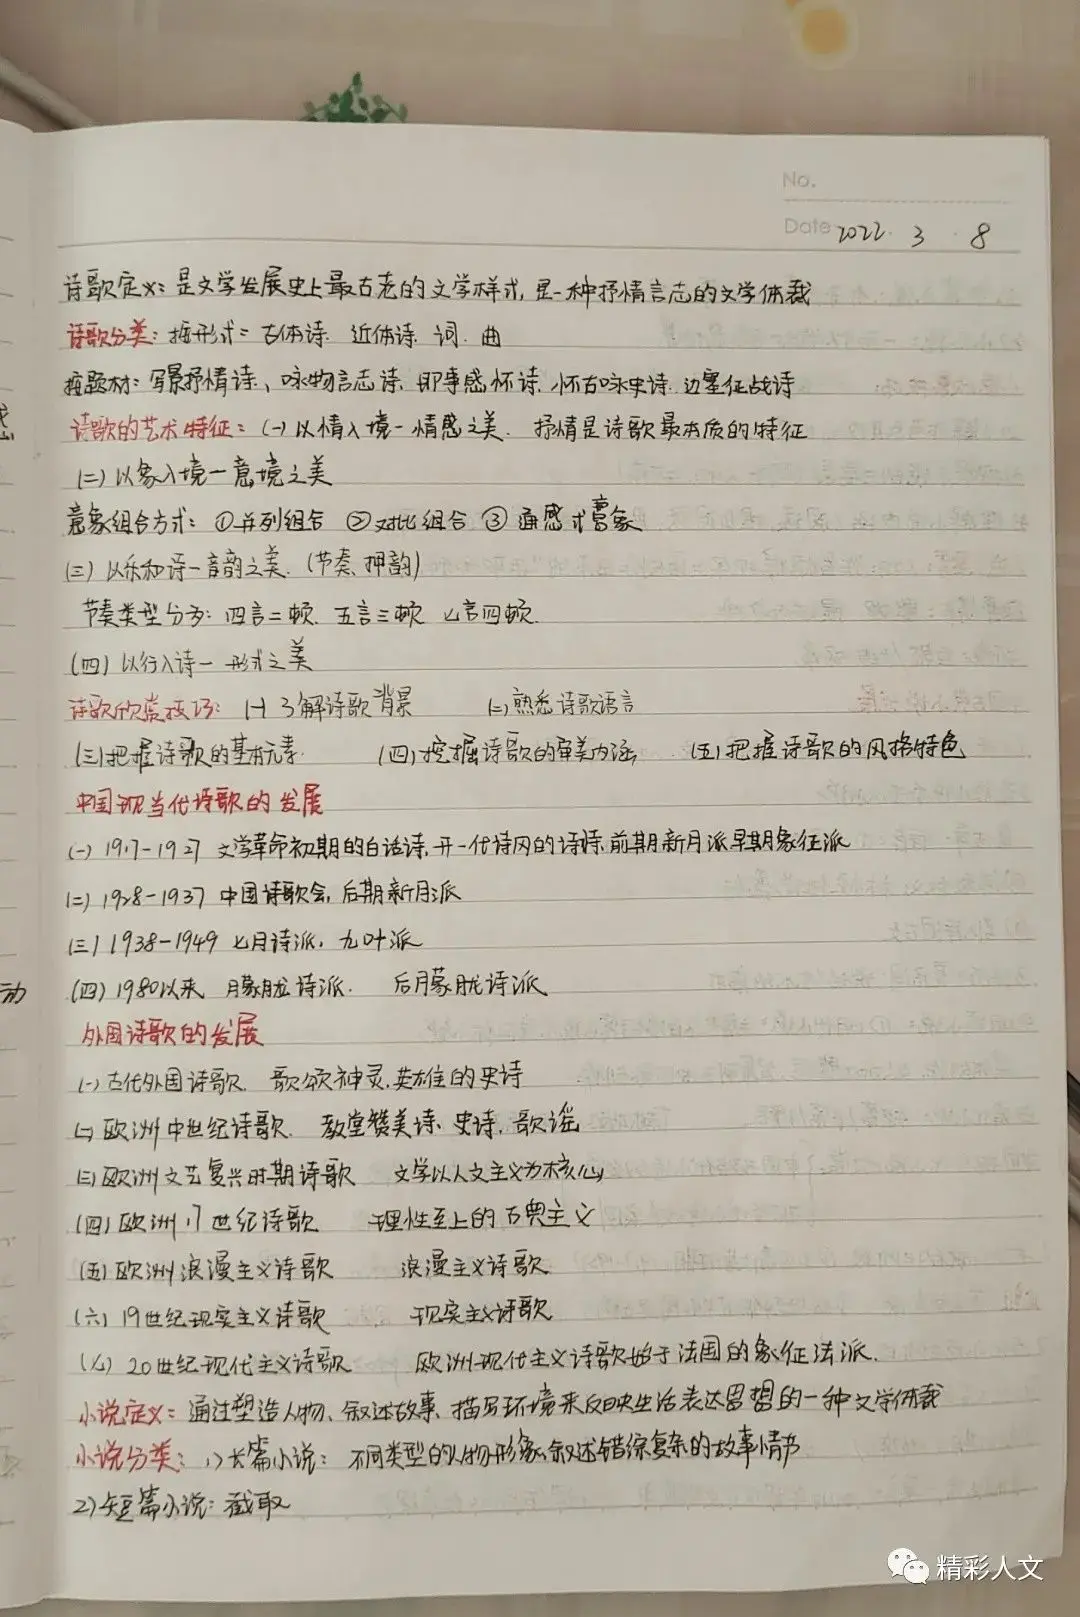 No.
Date 2022. 3 . 8
诗歌定义：是文学发展史上最古老的文学样式，是一种抒情言志的文学体裁
诗歌分类：按形式：古体诗. 近体诗. 词. 曲
按题材：写景抒情诗、咏物言志诗. 即事感怀诗. 怀古咏史诗. 边塞征战诗
诗歌的艺术特征：(一)以情入境一情感之美. 抒情是诗歌最本质的特征
(二)以象入境一意境之美
意象组合方式：①并列组合 ②对比组合 ③通感式意象
(三)以乐和诗一音韵之美. (节奏、押韵)
节奏类型分为：四言二顿. 五言三顿 七言四顿.
(四)以行入诗一形式之美
诗歌欣赏技巧：(一)了解诗歌背景 (二)熟悉诗歌语言
(三)把握诗歌的基本元素. (四)挖掘诗歌的审美内涵 (五)把握诗歌的风格特色
中国现当代诗歌的发展
(一) 1917-1927 文学革命初期的白话诗，开一代诗风的诗 前期新月派 早期象征派
(二) 1928-1937 中国诗歌会，后期新月派
(三) 1938-1949 七月诗派，九叶派
(四) 1980以来 朦胧诗派. 后朦胧诗派
外国诗歌的发展
(一)古代外国诗歌. 歌颂神灵，英雄的史诗
(二)欧洲中世纪诗歌. 教堂赞美诗. 史诗，歌谣
(三)欧洲文艺复兴时期诗歌 文学以人文主义为核心
(四)欧洲17世纪诗歌 理性至上的古典主义
(五)欧洲浪漫主义诗歌 浪漫主义诗歌
(六)19世纪现实主义诗歌 现实主义诗歌
(七)20世纪现代主义诗歌 欧洲现代主义诗歌始于法国的象征法派.
小说定义：通过塑造人物、叙述故事、描写环境来反映生活表达思想的一种文学体裁
小说分类：1)长篇小说：不同类型的人物形象，叙述错综复杂的故事情节
2)短篇小说：截取
动
精彩人文